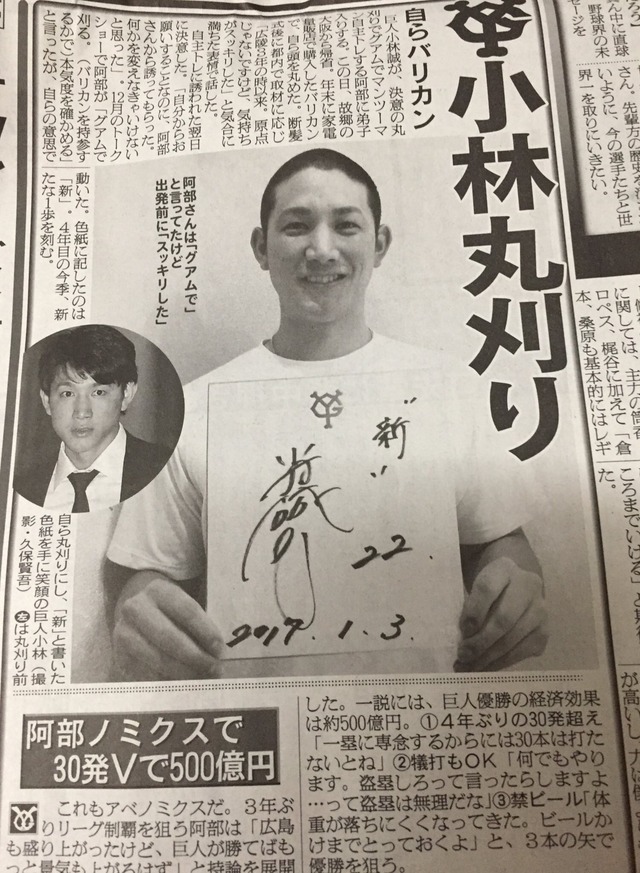 小林丸刈り
自らバリカン
巨人小林誠が、決意の丸
刈りでグアムでマンツーマ
ン自主トレする阿部に弟子
入りする。この日、故郷の
大阪から帰省。年末に家電
量販店で購入したバリカン
で、自ら頭を丸めた。断髪
式後に都内で取材に応じ
「広陵3年の時以来。原点
じゃないですけど、気持ち
がスッキリした」と気合に
満ちた表情で話した。
自主トレに誘われた翌日
に決意した。「自分からお
願いすることなのに、阿部
さんから誘ってもらった。
何かを変えなきゃいけない
と思った」。12月のトーク
ショーで阿部が「グアムで
刈る。（バリカンを持参す
るかで）本気度を確かめる」
と言ったが、自らの意思で
動いた。色紙に記したのは
「新」。4年目の今季、新
たな1歩を刻む。
阿部さんは「グアムで」
と言ってたけど
出発前に「スッキリした」
"新"
22.
2017.1.3.
自ら丸刈りにし、「新」と書いた
色紙を手に笑顔の巨人小林（撮
影・久保賢吾） 左は丸刈り前
阿部ノミクスで
30発Vで500億円
これもアベノミクスだ。3年ぶ
りリーグ制覇を狙う阿部は「広島
も盛り上がったけど、巨人が勝てばも
っと景気も上がるはず」と持論を展開
した。一説には、巨人優勝の経済効果
は約500億円。①4年ぶりの30発超え
「一塁に専念するからには30本は打た
ないとね」②犠打もOK「何でもやり
ます。盗塁しろって言ったらしますよ
…って盗塁は無理だな」③禁ビール「体
重が落ちにくくなってきた。ビールか
けまでとっておくよ」と、3本の矢で
優勝を狙う。
ん中に直球
野球界の未
セージを
さん。先輩方の歴史を
いように、今の選手たちと世
界一を取りにいきたい。
に関しては、主力の筒香
ロペス、梶谷に加えて「倉
本、桑原も基本的にはレギ
ころまでいける」と
た。